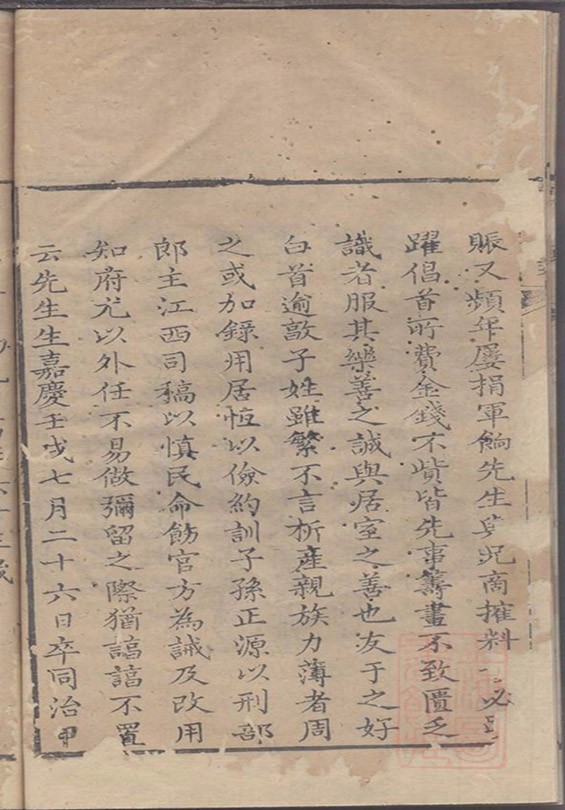 賑又頻年屢捐軍餉先生與況商搉料一必
躍倡首所費金錢不貲皆先事籌畫不致匱乏
識者服其樂善之誠與居室之善也友于之好
白首逾敦子姓雖繁不言析產親族力薄者周
之或加錄用居恆以儉約訓子孫正源以刑部
郎主江西司稿以慎民命飭官方為誡及改用
知府尤以外任不易做彌留之際猶諄諄不置
云先生生嘉慶壬戌七月二十六日卒同治甲